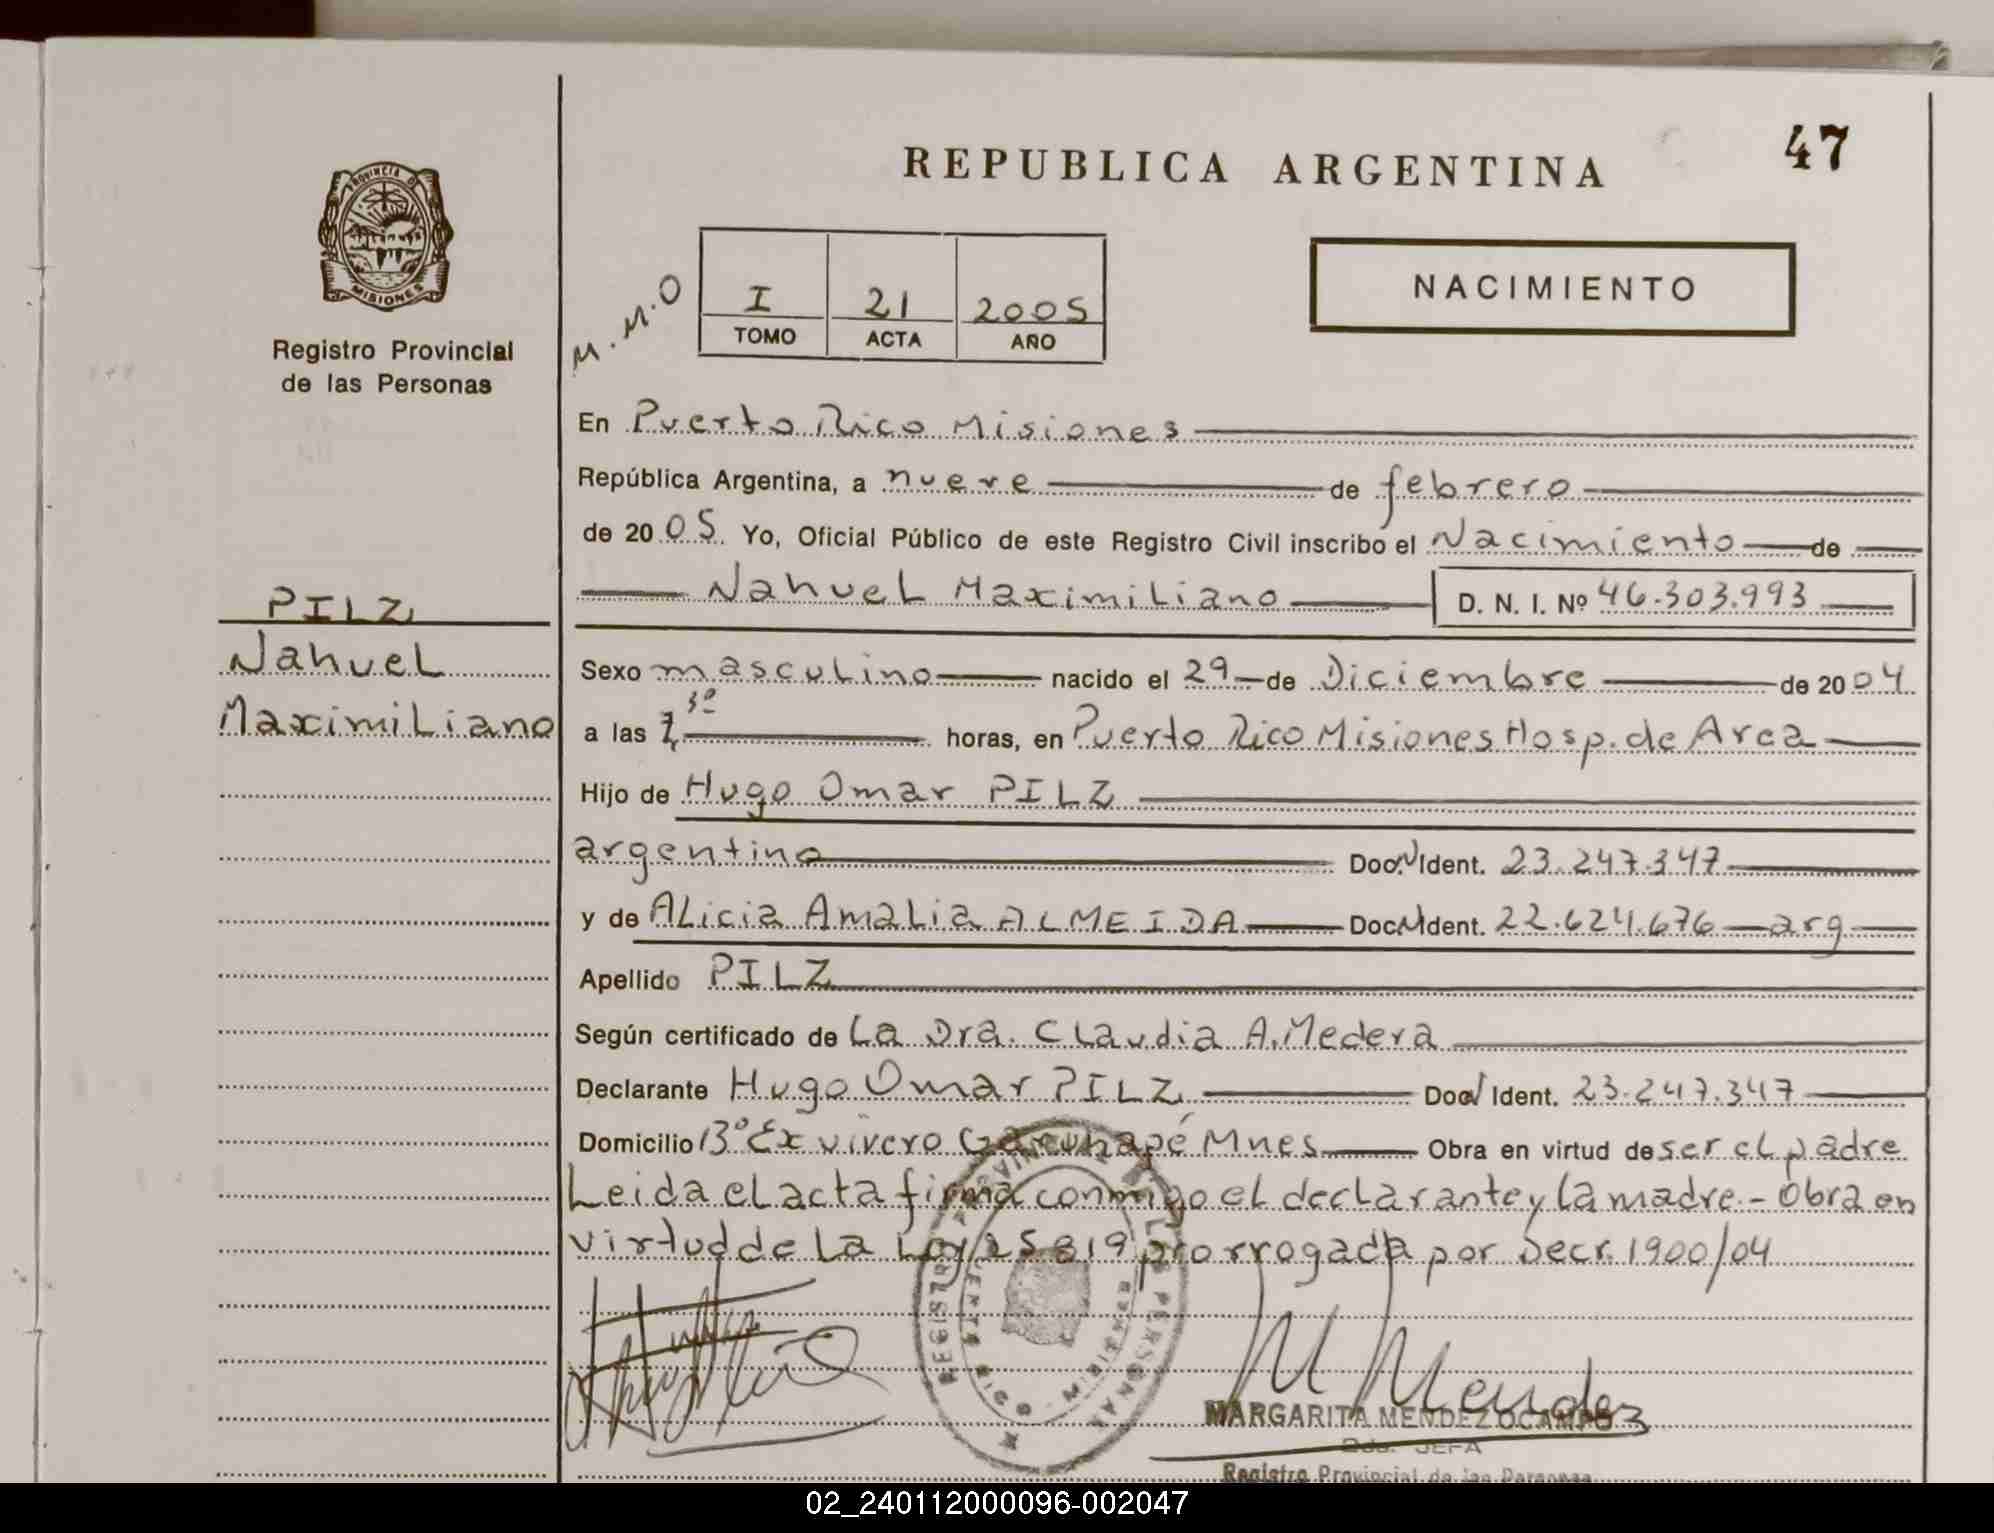 47
REPUBLICA ARGENTINA
PROVINCIA DE MISIONES
Registro Provincial
de las Personas
M.M.O
I 21 2005
TOMO ACTA AÑO
NACIMIENTO
En Puerto Rico Misiones
República Argentina, a nueve de febrero
de 2005 Yo, Oficial Público de este Registro Civil inscribo el Nacimiento de
Nahuel Maximiliano D. N. I. Nº 46.303.993
PILZ
Nahuel
Maximiliano
Sexo masculino nacido el 29 de Diciembre de 2004
a las 7,3º horas, en Puerto Rico Misiones Hosp. de Area
Hijo de Hugo Omar PILZ
argentino Doc. N Ident. 23.247.347
y de ALicia AmaLia ALMEIDA Doc. N Ident. 22.624.676 arg
Apellido PILZ
Según certificado de La Dra. CLaudia A. Medera
Declarante Hugo Omar PILZ Doc. N Ident. 23.247.347
Domicilio Bº Ex vivero Garuhapé Mnes Obra en virtud de ser el padre
Leida el acta firma conmigo el declarante y la madre.- Obra en
virtud de La Ley 25819 prorrogada por Decr. 1900/04
M Mendez
MARGARITA MENDEZ OCAMPO
JEFA
Registro Provincial de las Personas
02_240112000096-002047